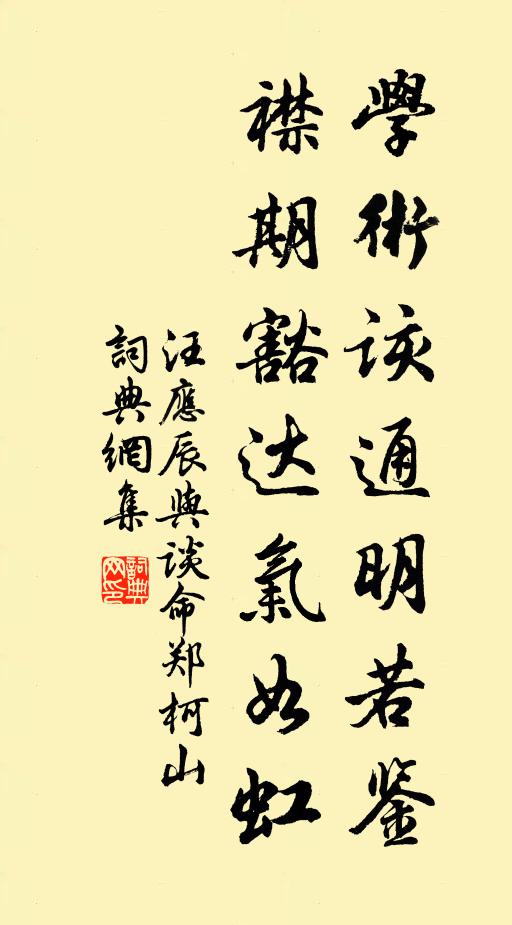 學術该通明若鉴
襟期豁达氣如虹
汪應辰與谈命郑柯山
詞典網集
詞典网印